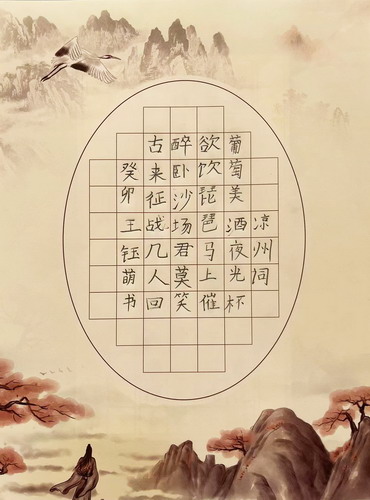 凉州词
葡萄美酒夜光杯
欲饮琵琶马上催
醉卧沙场君莫笑
古来征战几人回
癸卯王钰萌书